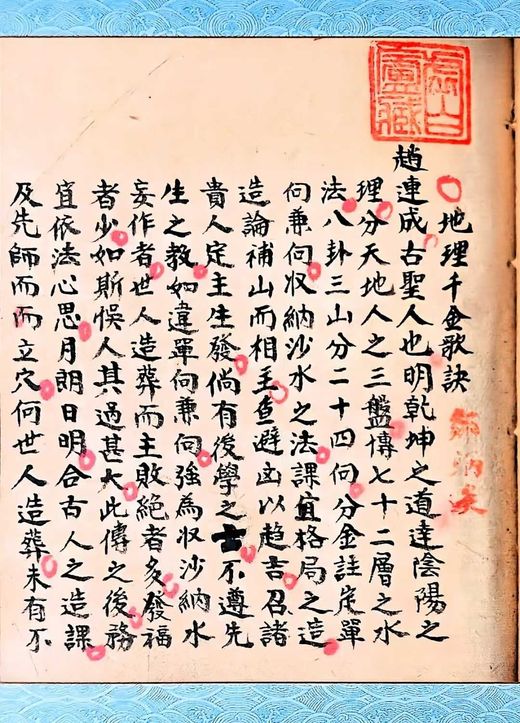 虛白廬藏
地理千金歌訣
趙連成古聖人也明乾坤之道達陰陽之
理分天地人之三盤傳七十二層之水
法八卦三山分二十四向分金註定單
向兼向収納沙水之法課宜格局之造
造論補山而相主魚避凶以趨吉召諸
貴人定主生發倘有後學之士不遵先
生之教如違單向兼向強為収沙納水
妄作者世人造葬而主敗絕者多發福
者少如斯悮人其過甚大此傳之後務
宜依法心思月朗日明合古人之造課
及先師而而立穴何世人造葬未有不